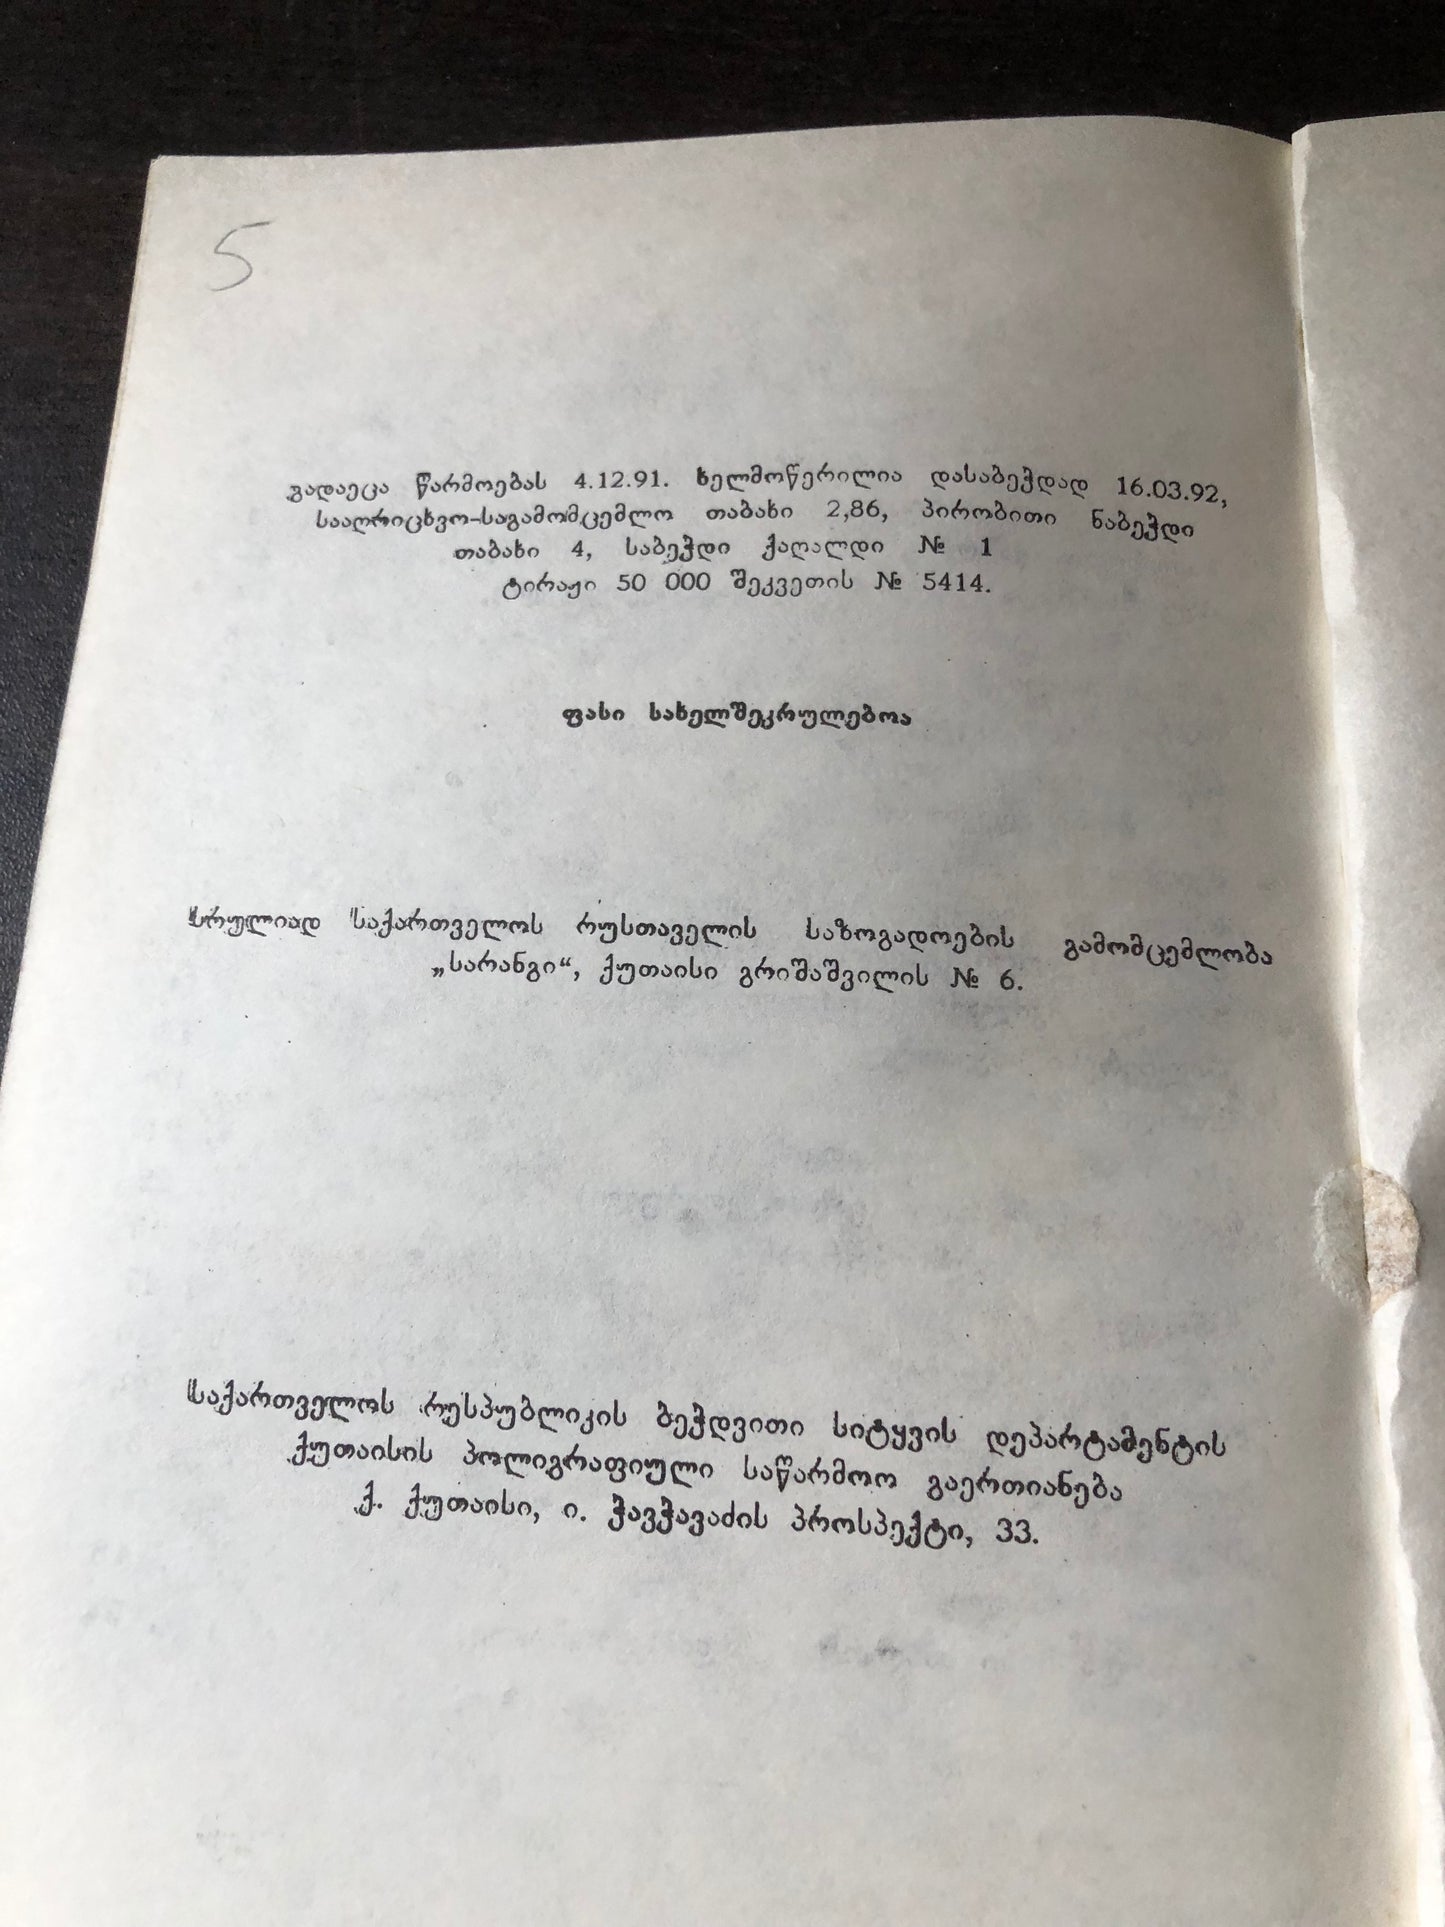 5
გადაეცა წარმოებას 4.12.91. ხელმოწერილია დასაბეჭდად 16.03.92,
სააღრიცხვო-საგამომცემლო თაბახი 2,86, პირობითი ნაბეჭდი
თაბახი 4, საბეჭდი ქაღალდი № 1
ტირაჟი 50 000 შეკვეთის № 5414.
ფასი სახელშეკრულებოა
სრულიად საქართველოს რუსთაველის საზოგადოების გამომცემლობა
„სარანგი“, ქუთაისი გრიშაშვილის № 6.
საქართველოს რესპუბლიკის ბეჭდვითი სიტყვის დეპარტამენტის
ქუთაისის პოლიგრაფიული საწარმოო გაერთიანება
ქ. ქუთაისი, ი. ჭავჭავაძის პროსპექტი, 33.